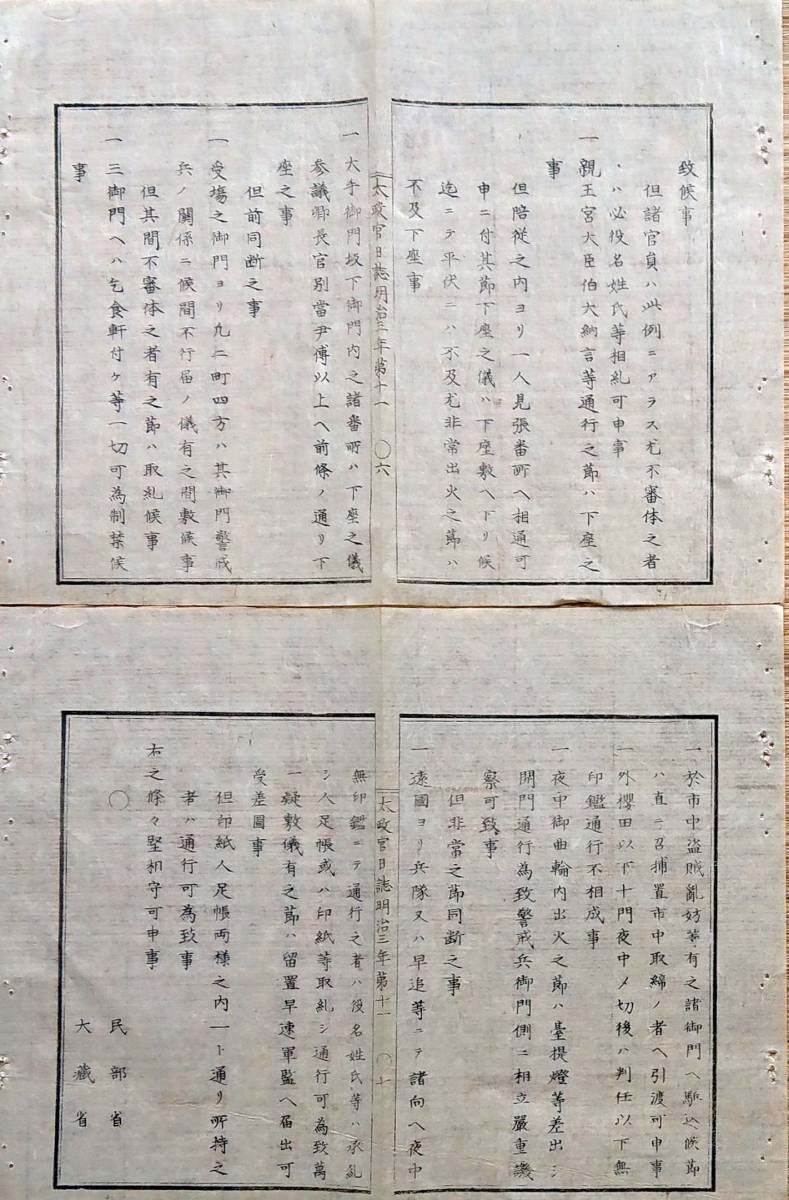 致候事
但諸官員ハ此例ニアラス尤不審体之者
ハ必役名姓氏等相糺可申事
一親王宮大臣伯大納言等通行之節ハ下座之
事
但陪従之内ヨリ一人見張番所ヘ相通可
申ニ付其節下座之儀ハ下座敷ヘ下リ候
迄ニテ平伏ニハ不及尤非常出火之節ハ
不及下座事
太政官日誌明治三年第十一 〇六
一大手御門坂下御門内之諸番所ハ下座之儀
参議卿長官別當尹傅以上ヘ前條ノ通リ下
座之事
但前同断之事
一受場之御門ヨリ九二町四方ハ其御門警戒
兵ノ關係ニ候間不行届ノ儀有之間敷候事
但其間不審体之者有之節ハ取糺候事
一三御門ヘハ乞食軒付ケ等一切可為制禁候
事
一於市中盗賊亂妨等有之諸御門ヘ駈込候節
ハ直ニ召捕置市中取締ノ者ヘ引渡可申事
一外櫻田以下十門夜中〆切後ハ判任以下無
印鑑通行不相成事
一夜中御曲輪内出火之節ハ臺提燈等差出シ
開門通行為致警戒兵御門側ニ相立嚴重譏
察可致事
但非常之節同断之事
一遠國ヨリ兵隊又ハ早追等ニテ諸向ヘ夜中
太政官日誌明治三年第十一 〇七
無印鑑ニテ通行之者ハ役名姓氏等ハ承糺
シ人足帳或ハ印紙等取糺シ通行可為致萬
一疑敷儀有之節ハ留置早速軍監ヘ届出可
受差圖事
但印紙人足帳両様之内一ト通リ所持之
者ハ通行可為致事
右之條々堅相守可申事
〇 民部省
大藏省